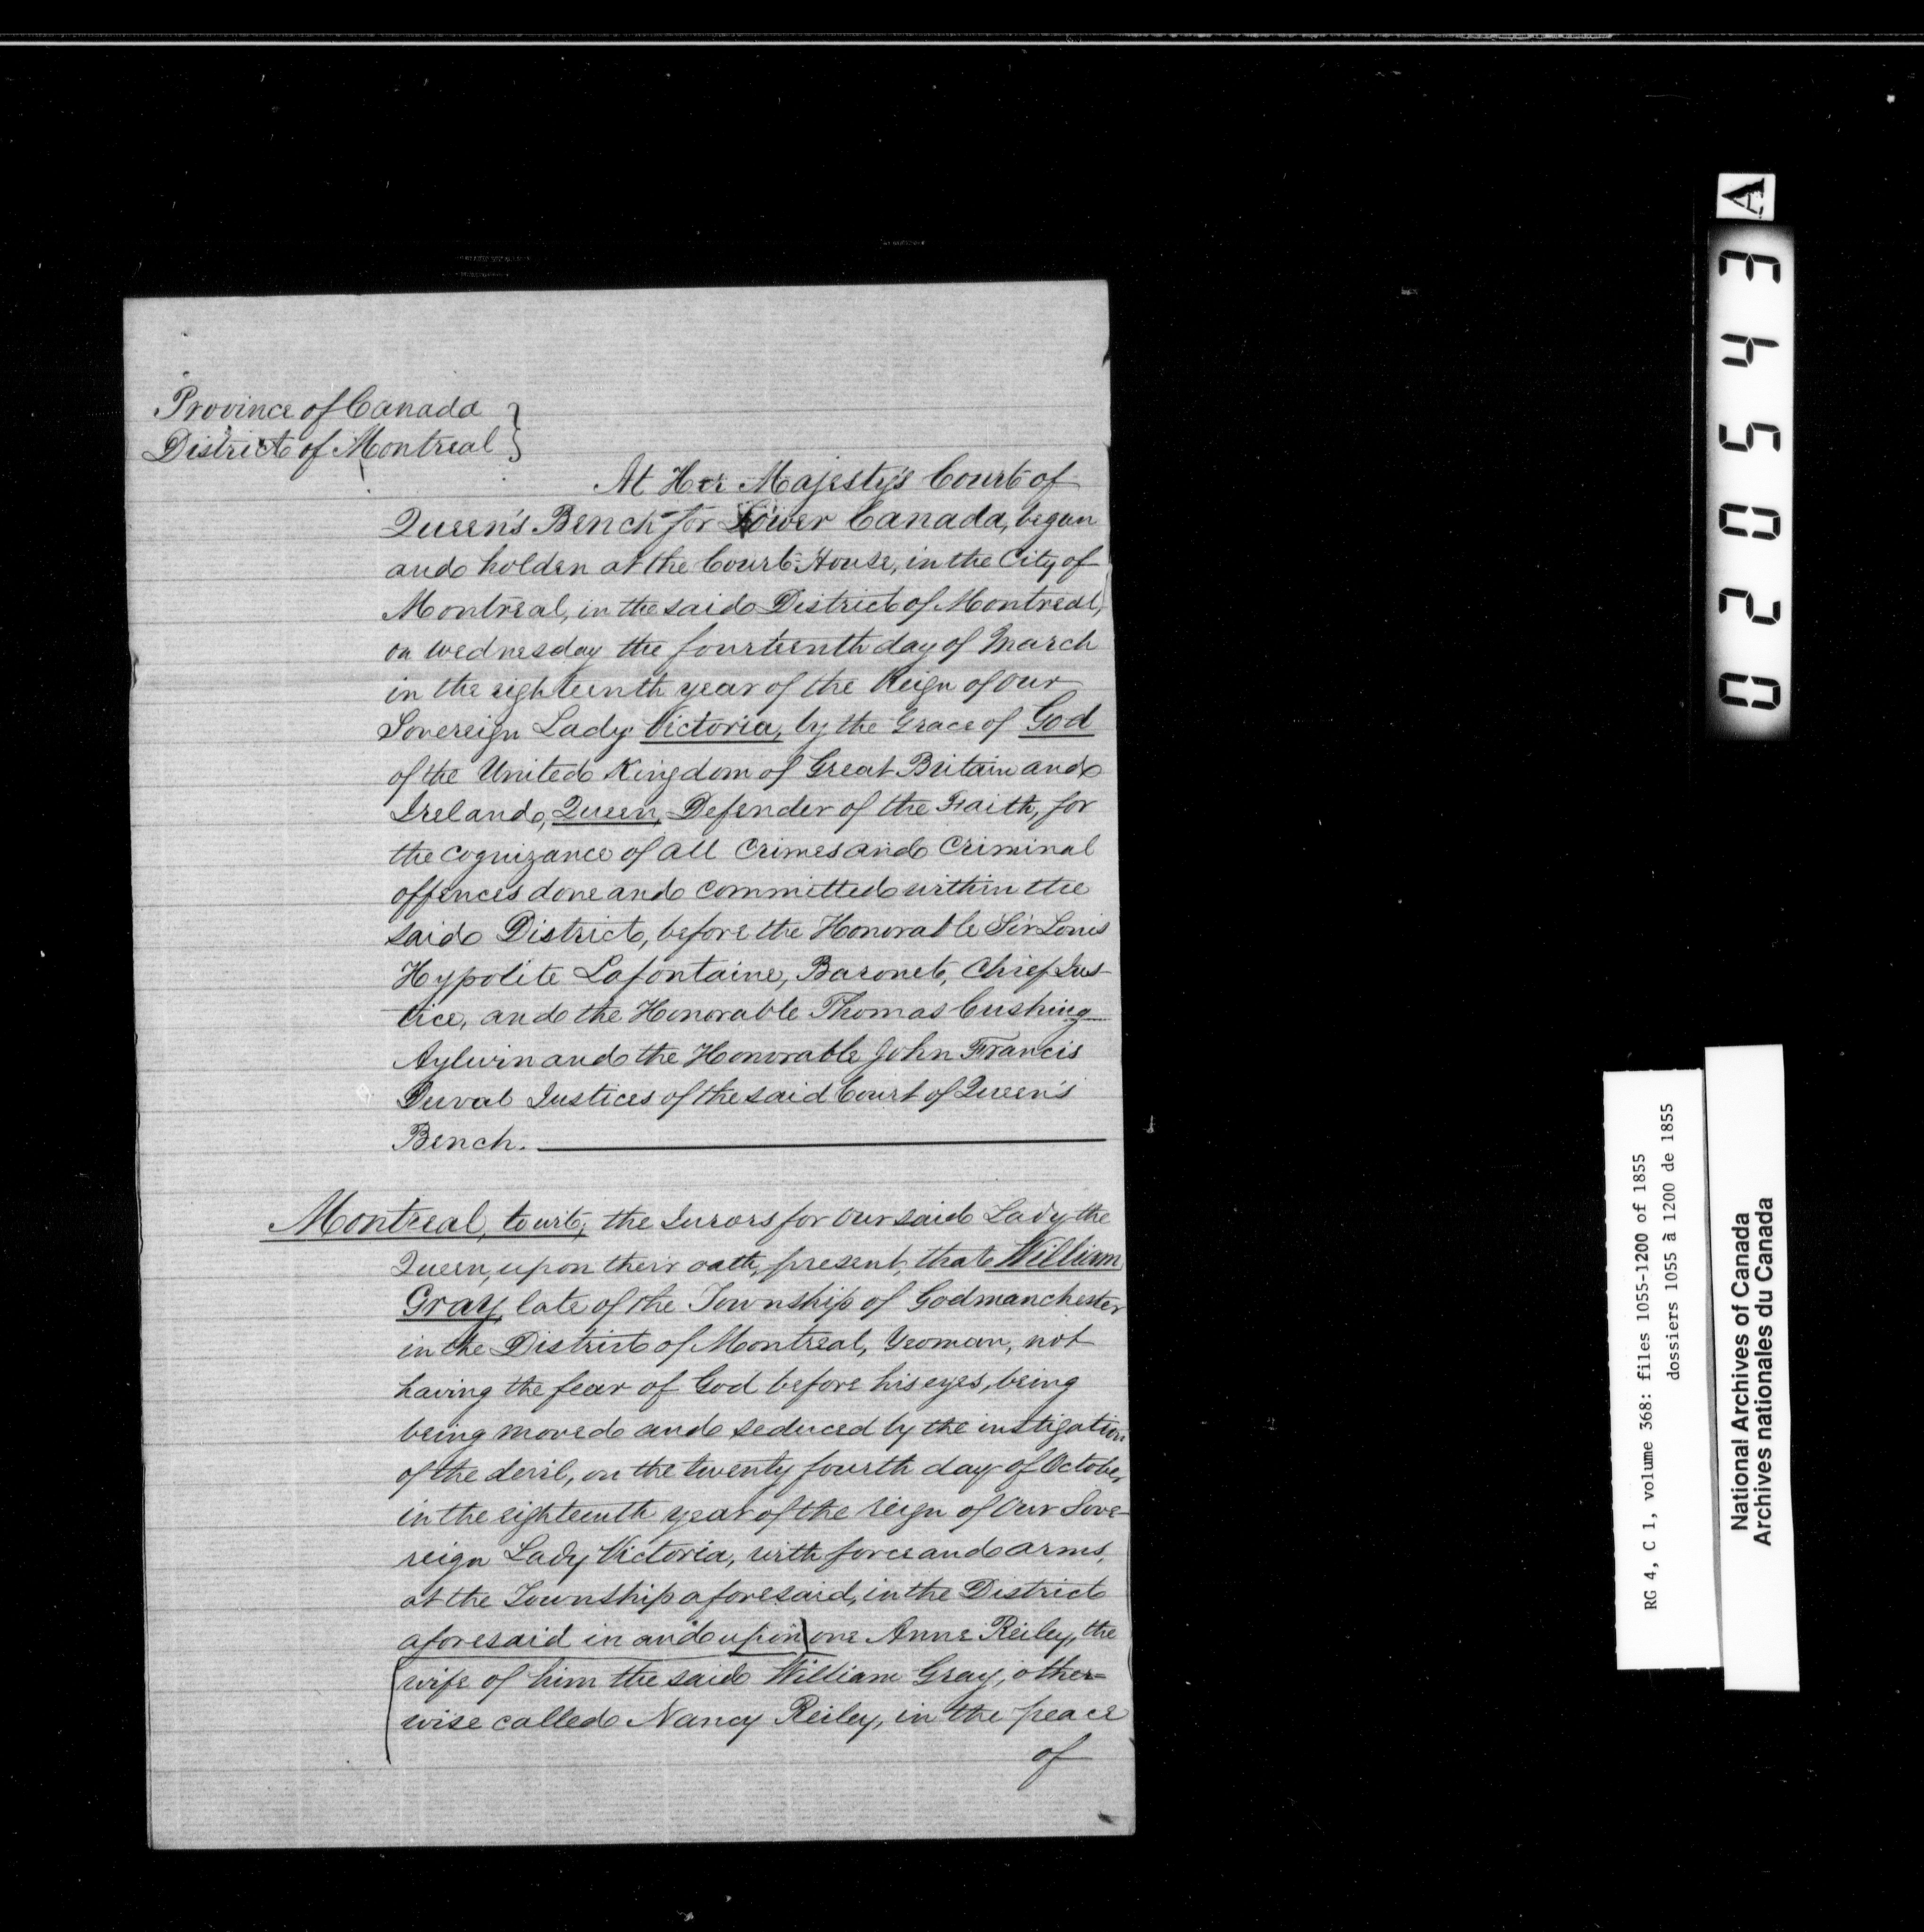 Province of Canada
District of Montreal
At Her Majesty's Court of
Queen's Bench for Lower Canada, began
and holden at the Court-House, in the City of
Montreal, in the said District of Montreal,
on wednesday the fourteenth day of March
in the eighteenth year of the Reign of our
Sovereign Lady Victoria, by the Grace of God
of the United Kingdom of Great Britain and
Ireland, Queen, Defender of the Faith, for
the cognizance of all Crimes and Criminal
offences done and committed within the
said District, before the Honorable Sir Louis
Hypolite Lafontaine, Baronet, Chief Jus-
tice, and the Honorable Thomas Cushing
Aylwin and the Honorable John Francis
Duval Justices of the said Court of Queen's
Bench.
Montreal, to wit, the Jurors for our said Lady the
Queen, upon their oath, present, that William
Gray, late of the Township of Godmanchester
in the District of Montreal, Yeoman, not
having the fear of God before his eyes, being
being moved and seduced by the instigation
of the devil, on the twenty fourth day of October,
in the eighteenth year of the reign of Our Sove-
reign Lady Victoria, with force and arms,
at the Township aforesaid, in the District
aforesaid in and upon one Anne Reiley, the
wife of him the said William Gray, other=
wise called Nancy Reiley, in the peace
of
020543 A
RG 4, C 1, volume 368: files 1055-1200 of 1855
dossiers 1055 à 1200 de 1855
National Archives of Canada
Archives nationales du Canada